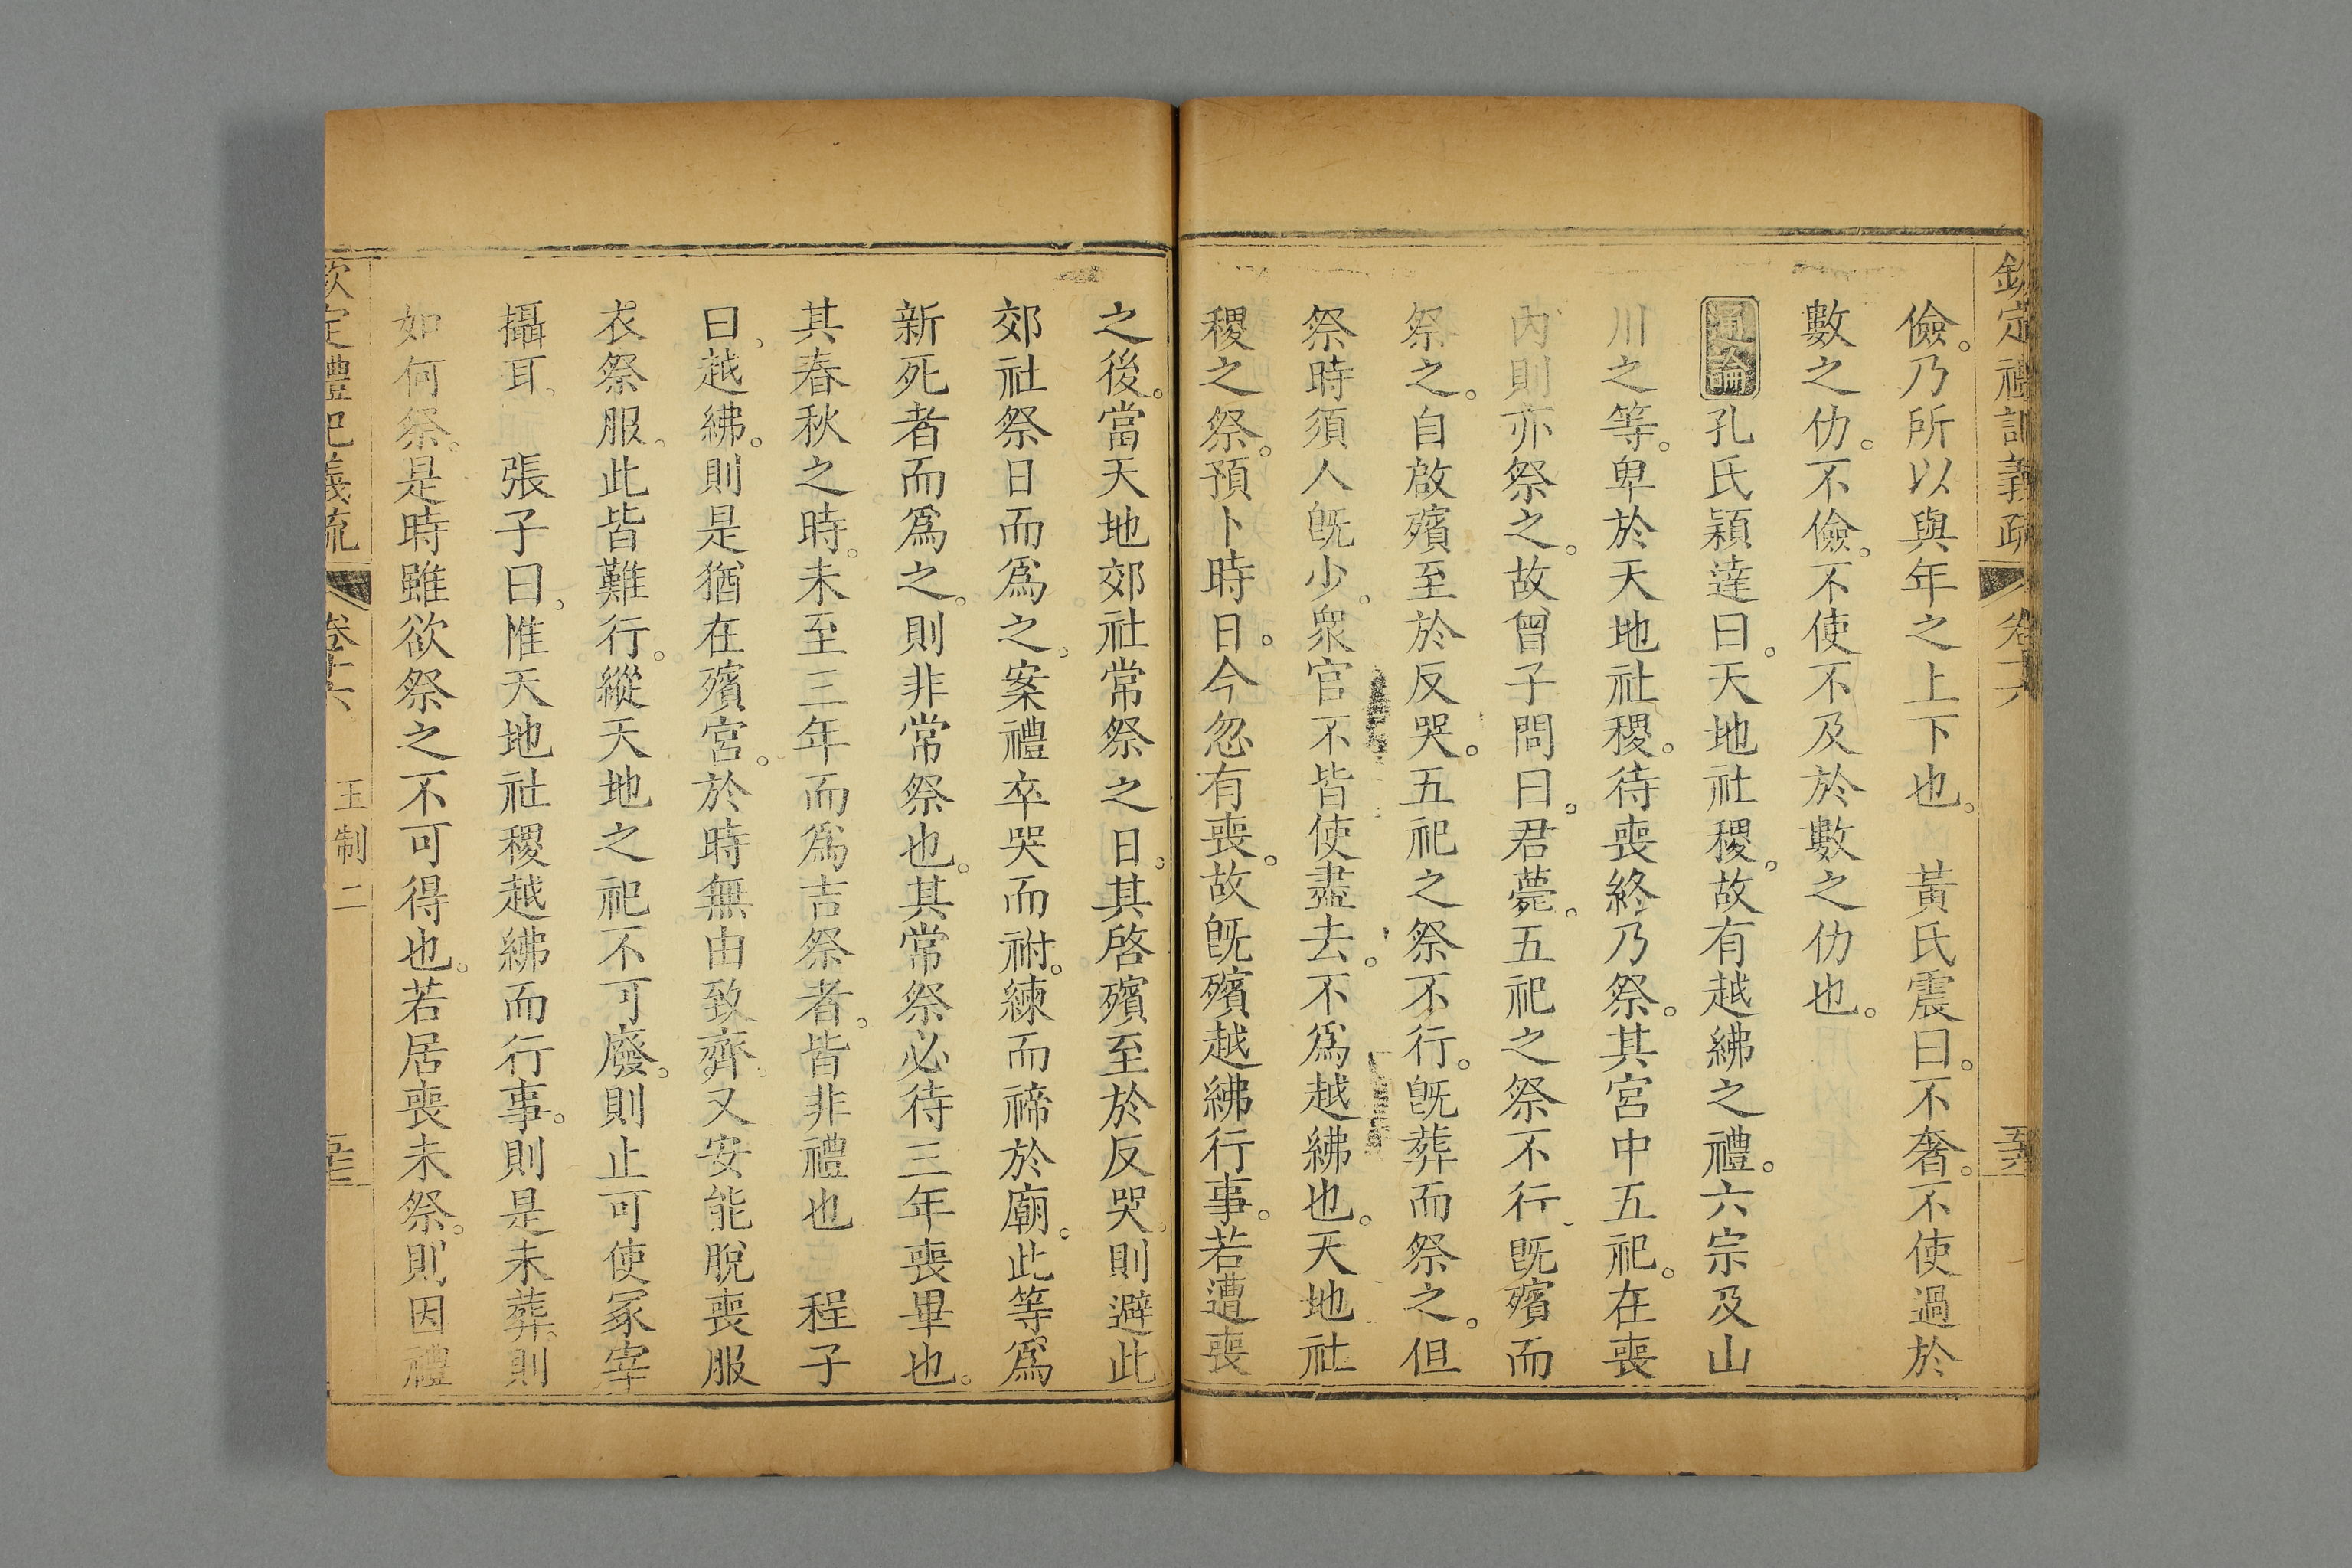 欽定禮記義疏 卷十六
儉。乃所以與年之上下也。 黃氏震曰。不奢。不使過於
數之仂。不儉。不使不及於數之仂也。
通論 孔氏穎達曰。天地社稷。故有越紼之禮。六宗及山
川之等。卑於天地社稷。待喪終乃祭。其宮中五祀。在喪
內則亦祭之。故曾子問曰。君薨。五祀之祭不行、既殯而
祭之。自啟殯至於反哭。五祀之祭不行。既葬而祭之。但
祭時須人既少。衆官不皆使盡去。不爲越紼也。天地社
稷之祭。預卜時日。今忽有喪。故既殯越紼行事。若遭喪
之後。當天地郊社常祭之日。其啓殯至於反哭。則避此
郊社祭日而爲之。案禮卒哭而祔。練而禘於廟。此等爲
新死者而爲之。則非常祭也。其常祭必待三年喪畢也。
其春秋之時。未至三年而爲吉祭者。皆非禮也 程子
曰。越紼。則是猶在殯宮。於時無由致齊。又安能脫喪服
衣祭服。此皆難行。縱天地之祀不可廢。則止可使冢宰
攝耳。 張子曰。惟天地社稷越紼而行事。則是未葬。則
如何祭。是時雖欲祭之不可得也。若居喪未祭。則因禮
欽定禮記義疏 卷十六 王制二